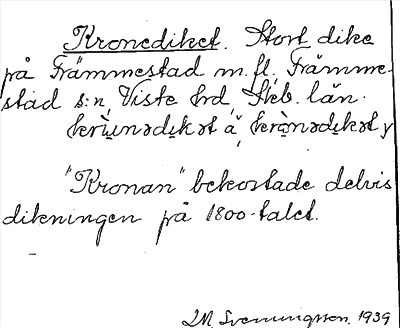 Kronediket. Stort dike
på Främmestad m. fl., Främme-
stad s:n, Viste hd, Skb. län.
kriunədikət ä, krönədikət y
"Kronan" bekostade delvis
dikningen på 1800-talet.
Svenningsson, 1939